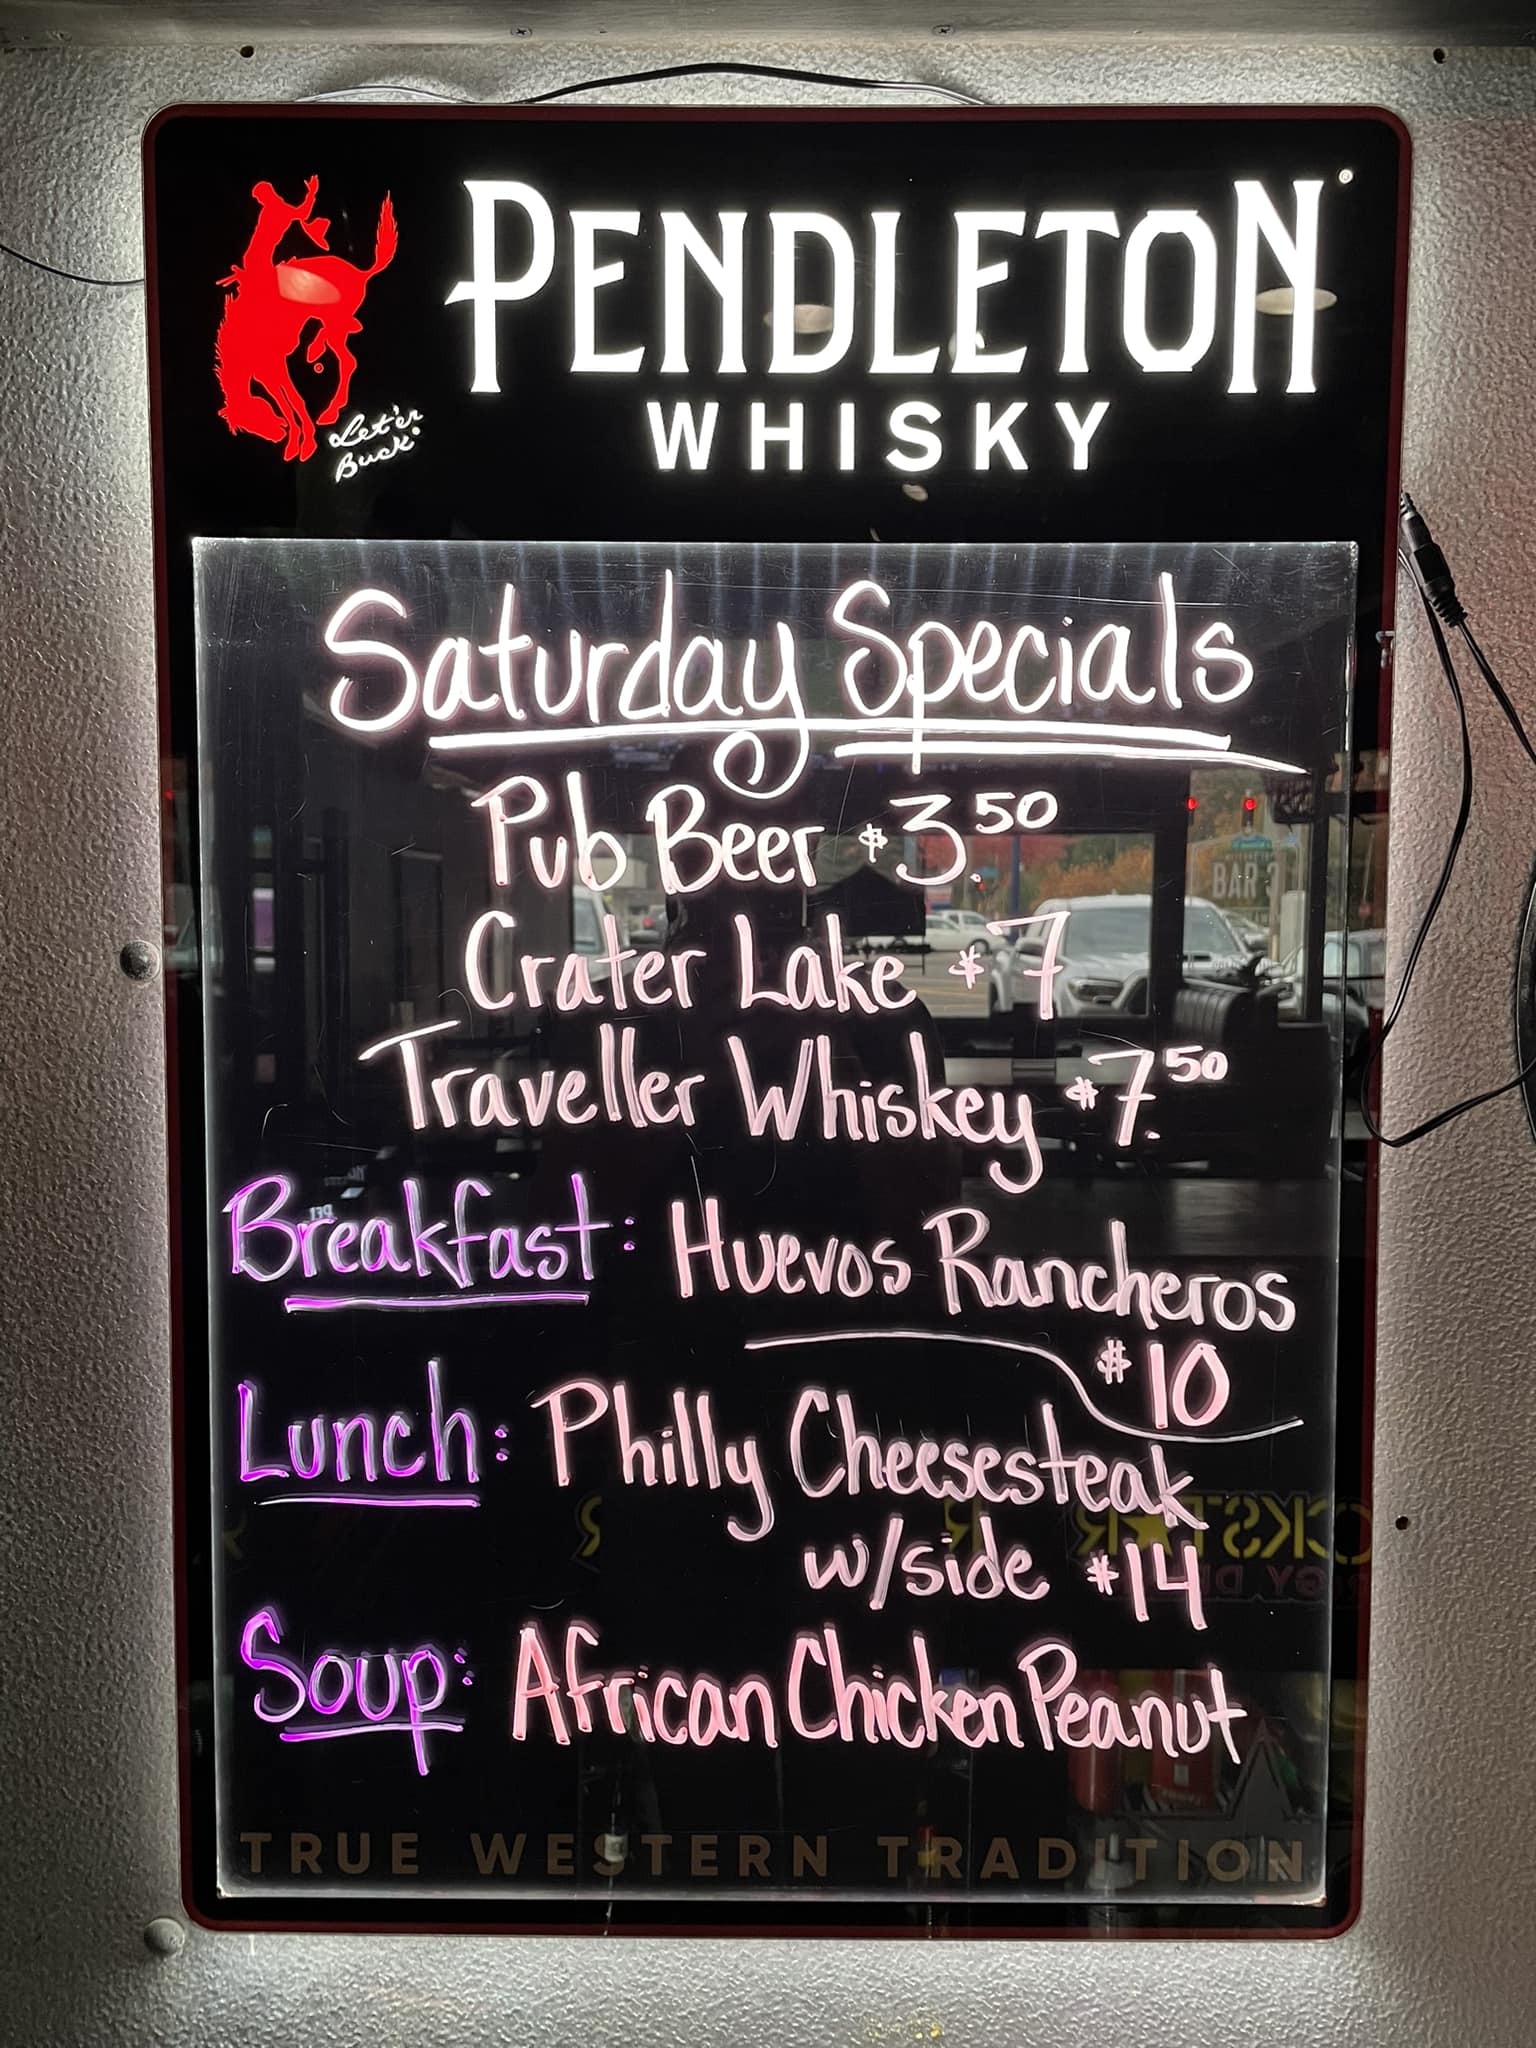 PENDLETON®
WHISKY
Let'er
Buck®
Saturday Specials
Pub Beer $3.50
Crater Lake $7
Traveller Whiskey $7.50
Breakfast: Huevos Rancheros
$10
Lunch: Philly Cheesesteak
w/side $14
Soup: African Chicken Peanut
TRUE WESTERN TRADITION
BAR